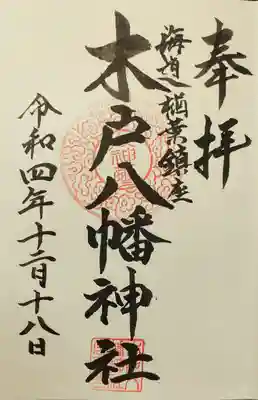 奉拝
海道一楢葉鎮座
木戸八幡神社
令和四年十二月十八日